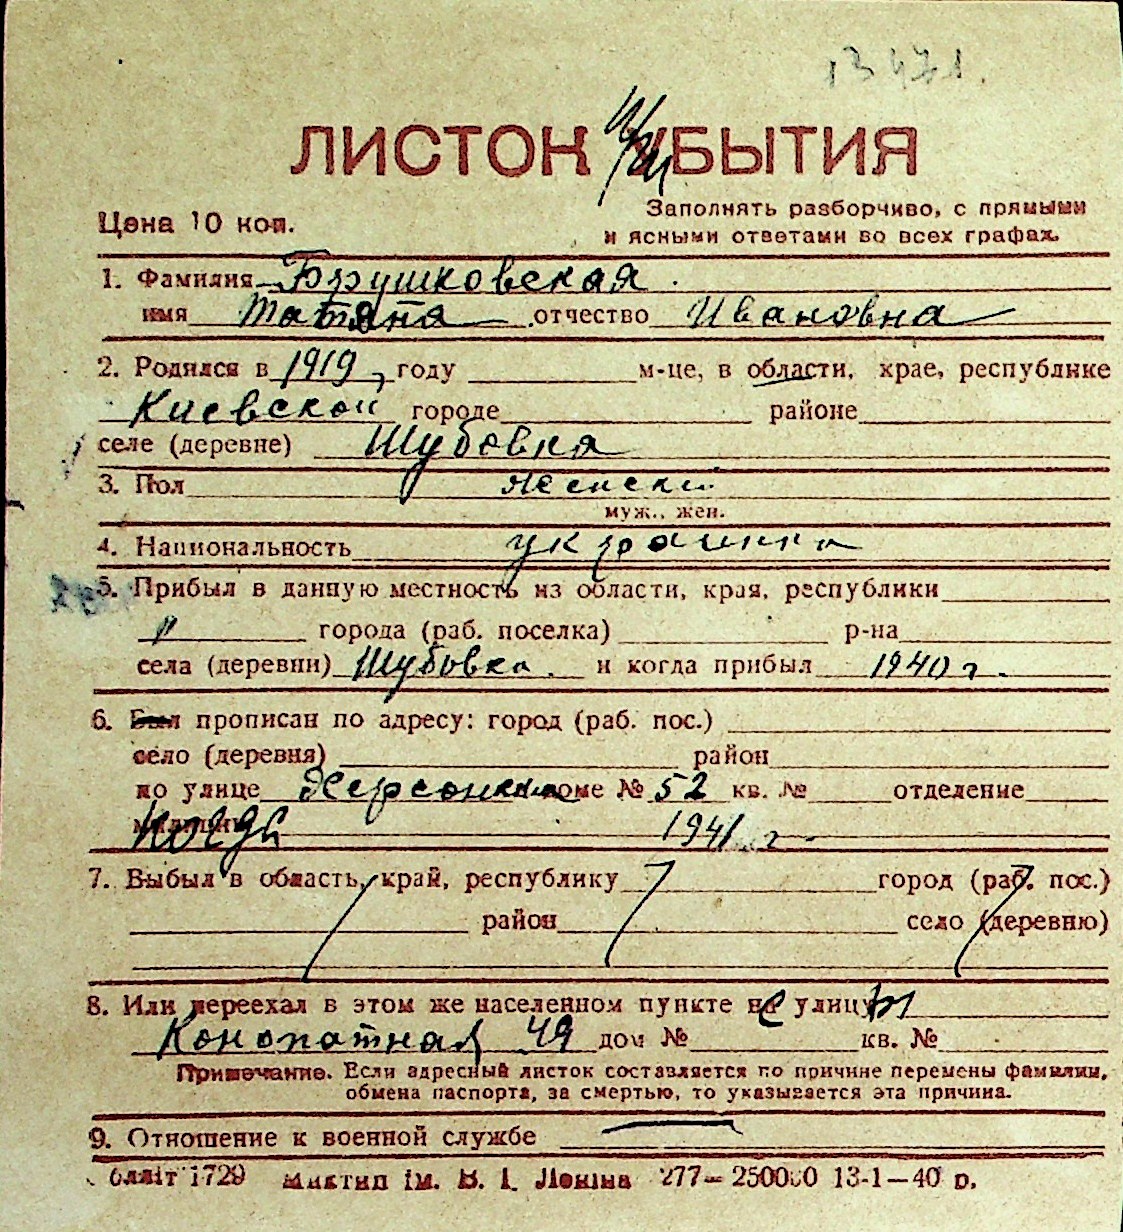 13471.
ЛИСТОК БЫТИЯ
Цена 10 коп.
Заполнять разборчиво, с прямыми
и ясными ответами во всех графах.
1. Фамилия Брушковская
имя Татяна отчество Ивановна
2. Родился в 1919, году м-це, в области, крае, республике
Киевской городе районе
селе (деревне) Шубовка
3. Пол женский
муж., жен.
4. Национальность украинка
5. Прибыл в данную местность из области, края, республики
" города (раб. поселка) р-на
села (деревни) Шубовка и когда прибыл 1940 г.
6. Был прописан по адресу: город (раб. пос.)
село (деревня) район
по улице Херсонская доме № 52 кв. № отделение
милиции когда 1941 г
7. Выбыл в область, край, республику город (раб. пос.)
район село (деревню)
8. Или переехал в этом же населенном пункте не улицы
Конопатная 49 дом № кв. №
Примечание. Если адресный листок составляется по причине перемены фамилии,
обмена паспорта, за смертью, то указывается эта причина.
9. Отношение к военной службе
1729 ім. В. І. Леніна 277—250000 13-1—40 р.